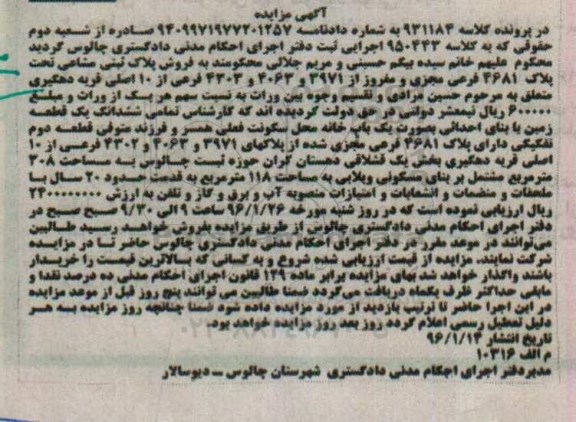 آگهی مزایده
در پرونده کلاسه ۹۳۱۱۸۴ به شماره دادنامه ۹۴۰۹۹۷۱۹۷۷۲۰۱۲۵۷ صادره از شعبه دوم
حقوقی که به کلاسه ۹۵۰۴۴۳ اجرایی ثبت دفتر اجرای احکام مدنی دادگستری چالوس گردید
محکوم علیهم خانم سیده بیگم حسینی و مریم جلالی محکومند به فروش پلاک ثبتی مشاعی تحت
پلاک ۴۶۸۱ فرعی مجزی و مفروز از ۳۹۷۱ و ۴۰۶۳ و ۴۳۰۳ فرعی از ۱۰ اصلی قریه دهگیری
متعلق به مرحوم حسین مرادی و تقسیم وجوه بین وراث به نسبت سهم هر یک از وراث و مبلغ
۶۰۰۰۰۰ ریال نیمعشر دولتی در حق دولت گردیده اند که کارشناس تمامی ششدانگ یک قطعه
زمین با بنای احداثی بصورت یک باب خانه محل سکونت فعلی همسر و فرزند متوفی قطعه دوم
تفکیکی دارای پلاک ۴۶۸۱ فرعی مجزی شده از پلاکهای ۳۹۷۱ و ۴۰۶۳ و ۴۳۰۲ فرعی از ۱۰
اصلی قریه دهگیری بخش یک قشلاقی دهستان کران حوزه ثبت چالوس به مساحت ۳۰۸
مترمربع مشتمل بر بنای مسکونی ویلایی به مساحت ۱۱۸ مترمربع به قدمت حدود ۲۰ سال با
ملحقات و منضمات و انشعابات و امتیازات منصوبه آب و برق و گاز و تلفن به ارزش ۲۴۰۰۰۰۰۰۰۰
ریال ارزیابی نموده است که در روز شنبه مورخه ۹۶/۱/۲۶ ساعت ۹ الی ۹/۳۰ صبح صبح در
دفتر اجرای احکام مدنی دادگستری چالوس از طریق مزایده بفروش خواهد رسید طالبین
می‌توانند در موعد مقرر در دفتر اجرای احکام مدنی دادگستری چالوس حاضر تا در مزایده
شرکت نمایند. مزایده از قیمت ارزیابی شده شروع و به کسانی که بالاترین قیمت را خریدار
باشند واگذار خواهد شد بهای مزایده برابر ماده ۱۲۹ قانون اجرای احکام مدنی ده درصد نقدا و
مابقی حداکثر ظرف یکماه دریافت می‌گردد ضمنا طالبین می توانند پنج روز قبل از موعد مزایده
در این اجرا حاضر تا ترتیب بازدید از مورد مزایده داده شود ضمنا چنانچه روز مزایده به هر
دلیل تعطیل رسمی اعلام گردد روز بعد روز مزایده خواهد بود.
تاریخ انتشار ۹۶/۱/۱۴
م الف ۱۰۳۱۶
مدیردفتر اجرای احکام مدنی دادگستری شهرستان چالوس ــ دیوسالار